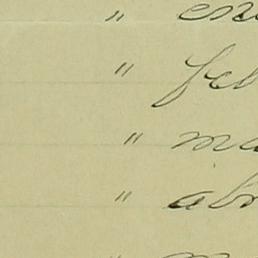 " en
" feb
" ma
" abr
"